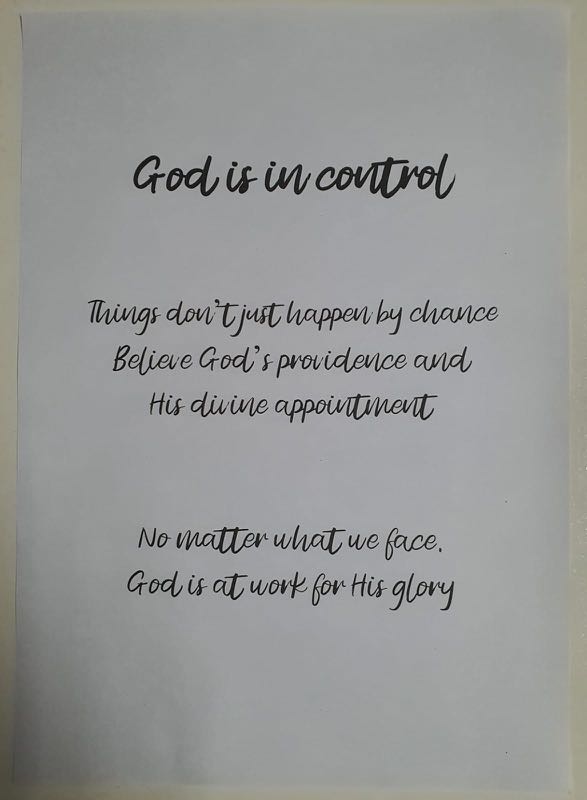 God is in control
Things don't just happen by chance
Believe God's providence and
His divine appointment
No matter what we face.
God is at work for His glory